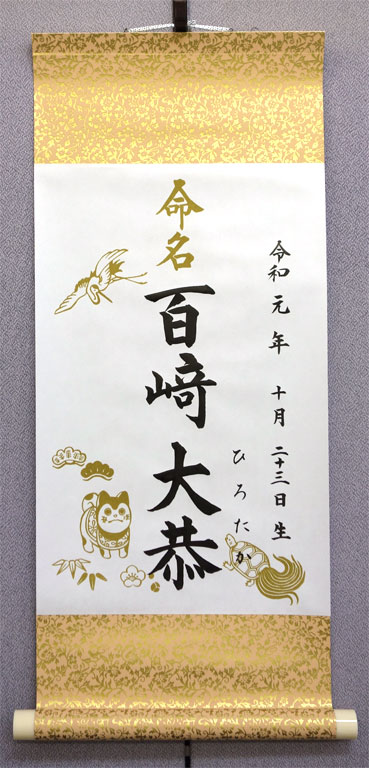 令和元年 十月 二十三日 生
命名 百﨑 大恭
ひろたか